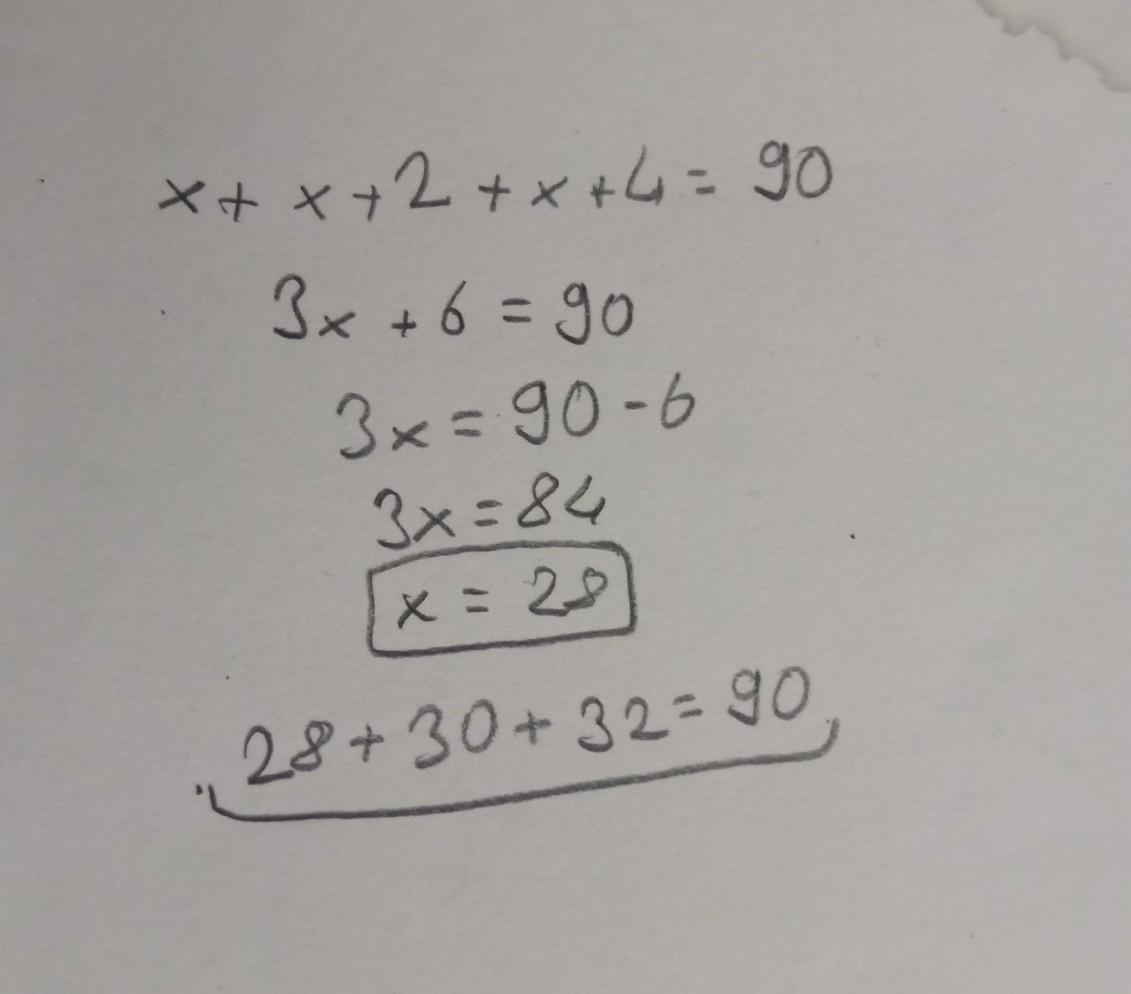 x + x + 2 + x + 4 = 90
3x + 6 = 90
3x = 90 - 6
3x = 84
x = 28
28 + 30 + 32 = 90